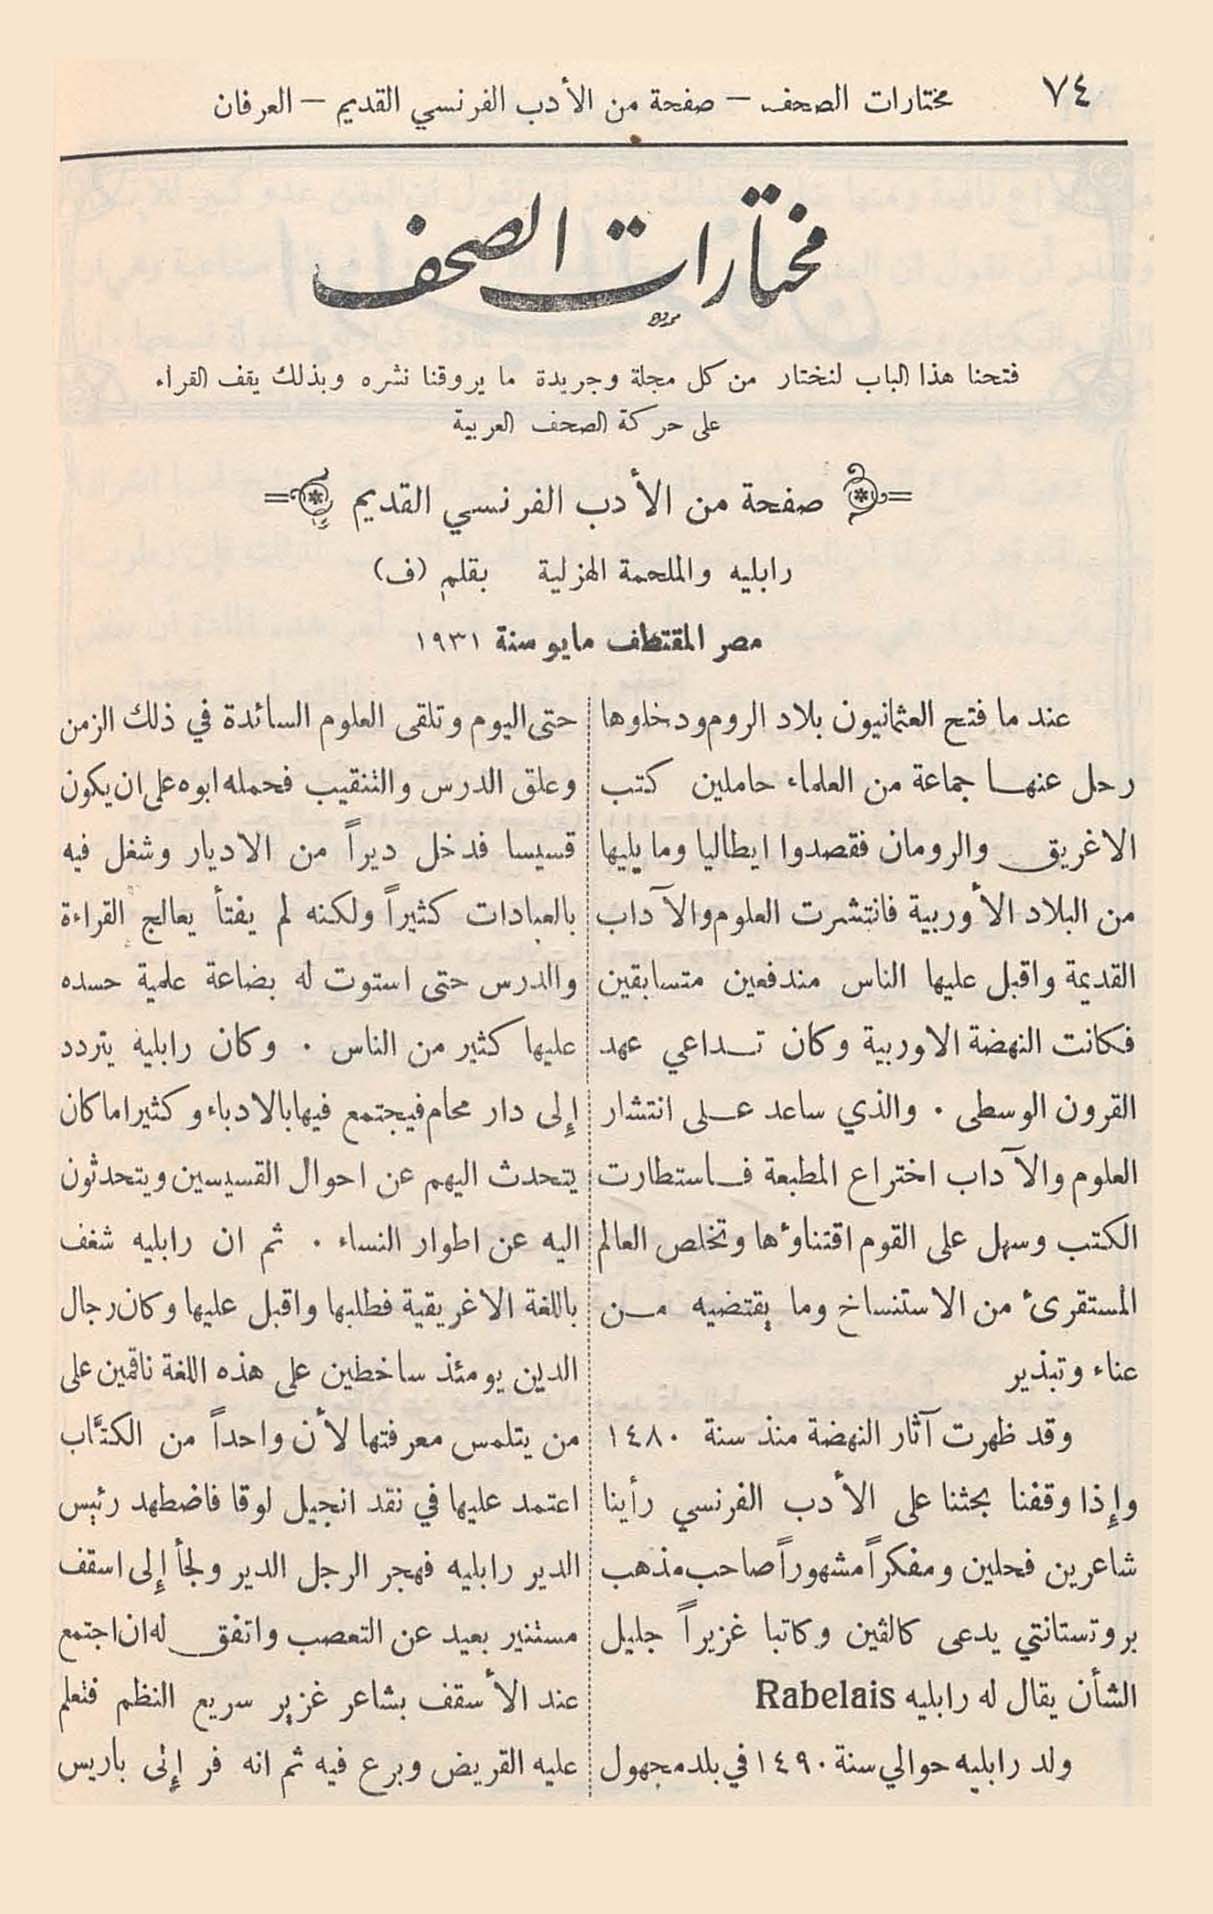 ٧٤ مختارات الصحف — صفحة من الأدب الفرنسي القديم — العرفان
مختارات الصحف
فتحنا هذا الباب لنختار من كل مجلة وجريدة ما يروقنا نشره وبذلك يقف القراء
على حركة الصحف العربية
صفحة من الأدب الفرنسي القديم
رابليه والملحمة الهزلية بقلم (ف)
مصر المقتطف مايو سنة ١٩٣١
عند ما فتح العثمانيون بلاد الروم ودخلوها
رحل عنها جماعة من العلماء حاملين كتب
الاغريق والرومان فقصدوا ايطاليا وما يليها
من البلاد الأوربية فانتشرت العلوم والآداب
القديمة واقبل عليها الناس مندفعين متسابقين
فكانت النهضة الاوربية وكان تداعي عهد
القرون الوسطى . والذي ساعد على انتشار
العلوم والآداب اختراع المطبعة فاستطارت
الكتب وسهل على القوم اقتناؤها وتخلص العالم
المستقرئ من الاستنساخ وما يقتضيه من
عناء وتبذير
وقد ظهرت آثار النهضة منذ سنة ١٤٨٠
وإذا وقفنا بحثنا على الأدب الفرنسي رأينا
شاعرين فحلين ومفكراً مشهوراً صاحب مذهب
بروتستانتي يدعى كالڤين وكاتبا غزيراً جليل
الشأن يقال له رابليه Rabelais
ولد رابليه حوالي سنة ١٤٩٠ في بلد مجهول
حتى اليوم وتلقى العلوم السائدة في ذلك الزمن
وعلق الدرس والتنقيب فحمله ابوه على ان يكون
قسيسا فدخل ديراً من الاديار وشغل فيه
بالعبادات كثيراً ولكنه لم يفتأ يعالج القراءة
والدرس حتى استوت له بضاعة علمية حسده
عليها كثير من الناس . وكان رابليه يتردد
إلى دار محام فيجتمع فيها بالادباء وكثيرا ما كان
يتحدث اليهم عن احوال القسيسين ويتحدثون
اليه عن اطوار النساء . ثم ان رابليه شغف
باللغة الاغريقية فطلبها واقبل عليها وكان رجال
الدين يومئذ ساخطين على هذه اللغة ناقمين على
من يتلمس معرفتها لأن واحداً من الكتَّاب
اعتمد عليها في نقد انجيل لوقا فاضطهد رئيس
الدير رابليه فهجر الرجل الدير ولجأ إلى اسقف
مستنير بعيد عن التعصب واتفق له ان اجتمع
عند الأسقف بشاعر غزير سريع النظم فتعلم
عليه القريض وبرع فيه ثم انه فر إلى باريس